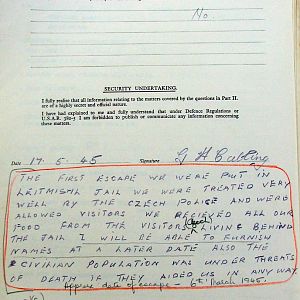 No.
SECURITY UNDERTAKING.
I fully realise that all information relating to the matters covered by the questions in Part II. are of a highly secret and official nature.
I have had explained to me and fully understand that under Defence Regulations or U.S.A.R. 380-5 I am forbidden to publish or communicate any information concerning these matters.
Date 17. 5. 45 Signature G H
THE FIRST ESCAPE WE WERE PUT IN
JAIL WE WERE TREATED VERY
WELL BY THE CZECH POLICE AND WERE
ALLOWED VISITORS WE RECIEVED ALL OUR
FOOD FROM THE VISITORS (Czech) LIVING BEHIND
THE JAIL I WILL BE ABLE TO FURNISH
NAMES AT A LATER DATE ALSO THE
CIVILIAN POPULATION WAS UNDER THREATS
OF DEATH IF THEY AIDED US IN ANY WAY
Approx date of escape - 6th March 1945.